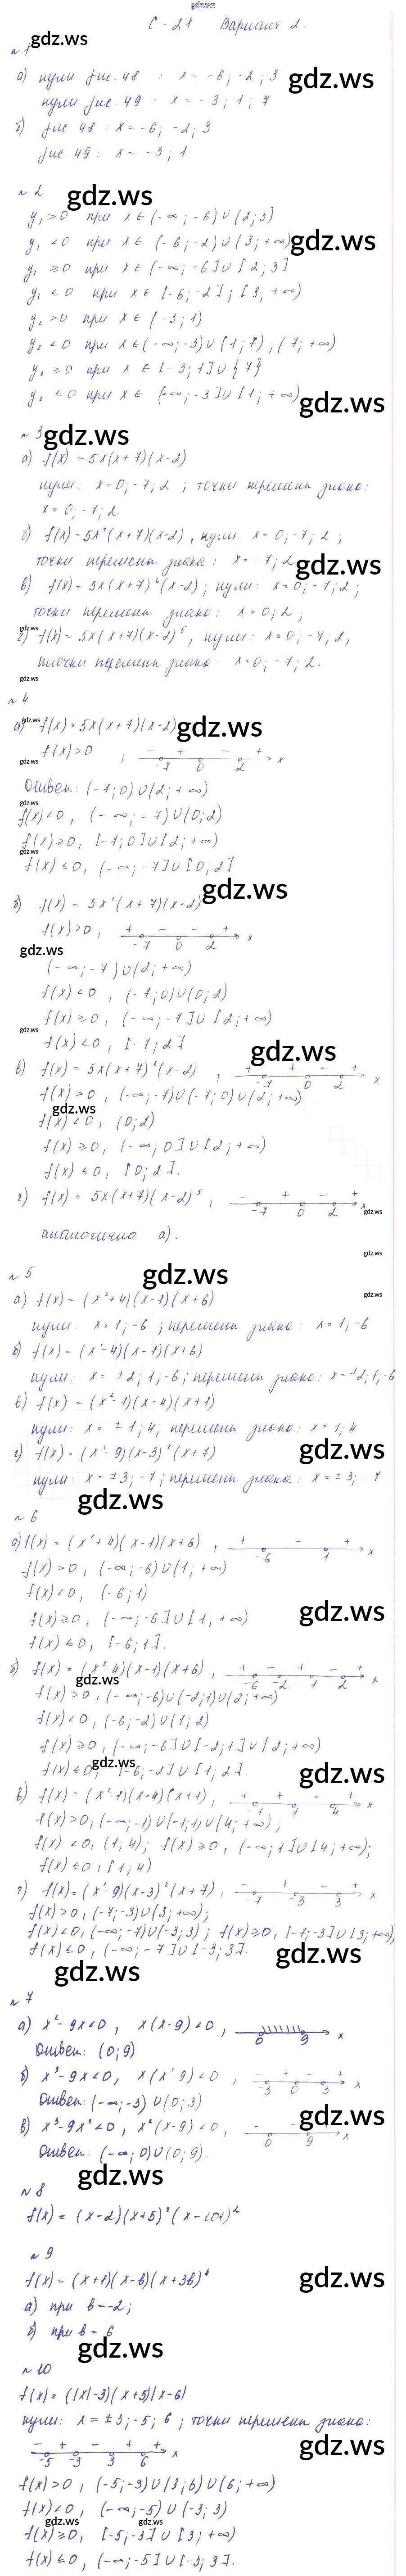 gdz.ws
С-21 Вариант 2.
№1
gdz.ws
а) нули рис. 48 : x = -6; -2; 3
gdz.ws
нули рис. 49 : x = -3; 1; 7
б) рис 48 : x = -6; -2; 3
рис. 49 : x = -3; 1
№2
gdz.ws
y₁ > 0 при x ∈ (-∞; -6) ∪ (2; 3)
y₁ < 0 при x ∈ (-6; -2) ∪ (3; +∞)
gdz.ws
y₁ ≥ 0 при x ∈ (-∞; -6] ∪ [2; 3]
y₁ ≤ 0 при x ∈ [-6; -2]; [3; +∞)
y₂ > 0 при x ∈ (-3; 1)
y₂ < 0 при x ∈ (-∞; -3) ∪ (1; 7); (7; +∞)
y₂ ≥ 0 при x ∈ [-3; 1] ∪ {7}
y₂ ≤ 0 при x ∈ (-∞; -3] ∪ [1; +∞)
gdz.ws
№3
gdz.ws
а) f(x) = 5x(x+7)(x-2)
нули: x = 0; -7; 2 ; точки перемены знака:
x = 0; -7; 2
б) f(x) = 5x²(x+7)(x-2), нули x = 0; -7; 2;
точки перемены знака: x = -7; 2
gdz.ws
в) f(x) = 5x(x+7)²(x-2); нули: x = 0; -7; 2;
точки перемены знака: x = 0; 2;
gdz.ws
г) f(x) = 5x(x+7)(x-2)⁵, нули: x = 0; -7; 2,
точки перемены знака: x = 0; -7; 2.
gdz.ws
№4
gdz.ws
а) f(x) = 5x(x+7)(x-2)
gdz.ws
f(x) > 0 , - + - + -7 0 2 x
gdz.ws
Ответ: (-7; 0) ∪ (2; +∞)
gdz.ws
f(x) < 0, (-∞; -7) ∪ (0; 2)
f(x) ≥ 0, [-7; 0] ∪ [2; +∞)
gdz.ws
f(x) ≤ 0, (-∞; -7] ∪ [0; 2]
gdz.ws
б) f(x) = 5x²(x+7)(x-2)
f(x) > 0, + - - + -7 0 2 x
gdz.ws
(-∞; -7) ∪ (2; +∞)
f(x) < 0, (-7; 0) ∪ (0; 2)
f(x) ≥ 0, (-∞; -7] ∪ [2; +∞)
gdz.ws
f(x) ≤ 0, [-7; 2]
gdz.ws
в) f(x) = 5x(x+7)²(x-2) , + + - + -7 0 2 x
f(x) > 0, (-∞; -7) ∪ (-7; 0) ∪ (2; +∞)
gdz.ws
f(x) < 0, (0; 2)
f(x) ≥ 0, (-∞; 0] ∪ [2; +∞)
f(x) ≤ 0, [0; 2].
г) f(x) = 5x(x+7)(x-2)⁵, - + - + -7 0 2 x
gdz.ws
аналогично а).
gdz.ws
№5
gdz.ws
gdz.ws
а) f(x) = (x²+4)(x-1)(x+6)
нули: x = 1; -6 ; перемены знака: x = 1; -6
б) f(x) = (x²-4)(x-1)(x+6)
нули: x = ±2; 1; -6; перемены знака: x = ±2; 1; -6
в) f(x) = (x²-1)(x-4)(x+1)
нули: x = ±1; 4; перемены знака: x = 1; 4
gdz.ws
г) f(x) = (x²-9)(x-3)²(x+7)
нули: x = ±3; -7; перемены знака: x = ±3; -7
gdz.ws
№6
а) f(x) = (x²+4)(x-1)(x+6) , + - + -6 1 x
f(x) > 0, (-∞; -6) ∪ (1; +∞)
f(x) < 0, (-6; 1)
gdz.ws
f(x) ≥ 0, (-∞; -6] ∪ [1; +∞)
f(x) ≤ 0, [-6; 1].
б) f(x) = (x²-4)(x-1)(x+6), + - + - + -6 -2 1 2 x
gdz.ws
f(x) > 0, (-∞; -6) ∪ (-2; 1) ∪ (2; +∞)
f(x) < 0, (-6; -2) ∪ (1; 2)
f(x) ≥ 0, (-∞; -6] ∪ [-2; 1] ∪ [2; +∞)
gdz.ws
f(x) ≤ 0, [-6; -2] ∪ [1; 2].
gdz.ws
в) f(x) = (x²-1)(x-4)(x+1), + + - + -1 1 4 x
f(x) > 0, (-∞; -1) ∪ (-1; 1) ∪ (4; +∞);
f(x) < 0, (1; 4); f(x) ≥ 0, (-∞; 1] ∪ [4; +∞);
f(x) ≤ 0, [1; 4)
г) f(x) = (x²-9)(x-3)²(x+7), - + - + -7 -3 3 x
f(x) > 0, (-7; -3) ∪ (3; +∞);
f(x) < 0, (-∞; -7) ∪ (-3; 3) ; f(x) ≥ 0, [-7; -3] ∪ [3; +∞),
f(x) ≤ 0, (-∞; -7] ∪ [-3; 3].
gdz.ws
gdz.ws
№7
а) x² - 9x < 0, x(x-9) < 0, 0 9 x
Ответ: (0; 9)
б) x³ - 9x < 0, x(x²-9) < 0 , - + - + -3 0 3 x
Ответ: (-∞; -3) ∪ (0; 3)
gdz.ws
в) x³ - 9x² < 0, x²(x-9) < 0, - - + 0 9 x
Ответ: (-∞; 0) ∪ (0; 9).
gdz.ws
№8
f(x) = (x-2)(x+5)²(x-101)²
№9
gdz.ws
f(x) = (x+1)(x-b)(x+3b)
а) при b = -2;
б) при b = 6
gdz.ws
№10
f(x) = (|x|-3)(x+5)|x-6|
нули: x = ±3; -5; 6 ; точки перемены знака:
gdz.ws
- + - + + -5 -3 3 6 x
f(x) > 0, (-5; -3) ∪ (3; 6) ∪ (6; +∞)
f(x) < 0, (-∞; -5) ∪ (-3; 3)
gdz.ws gdz.ws
f(x) ≥ 0, [-5; -3] ∪ [3; +∞)
f(x) ≤ 0, (-∞; -5] ∪ [-3; 3].